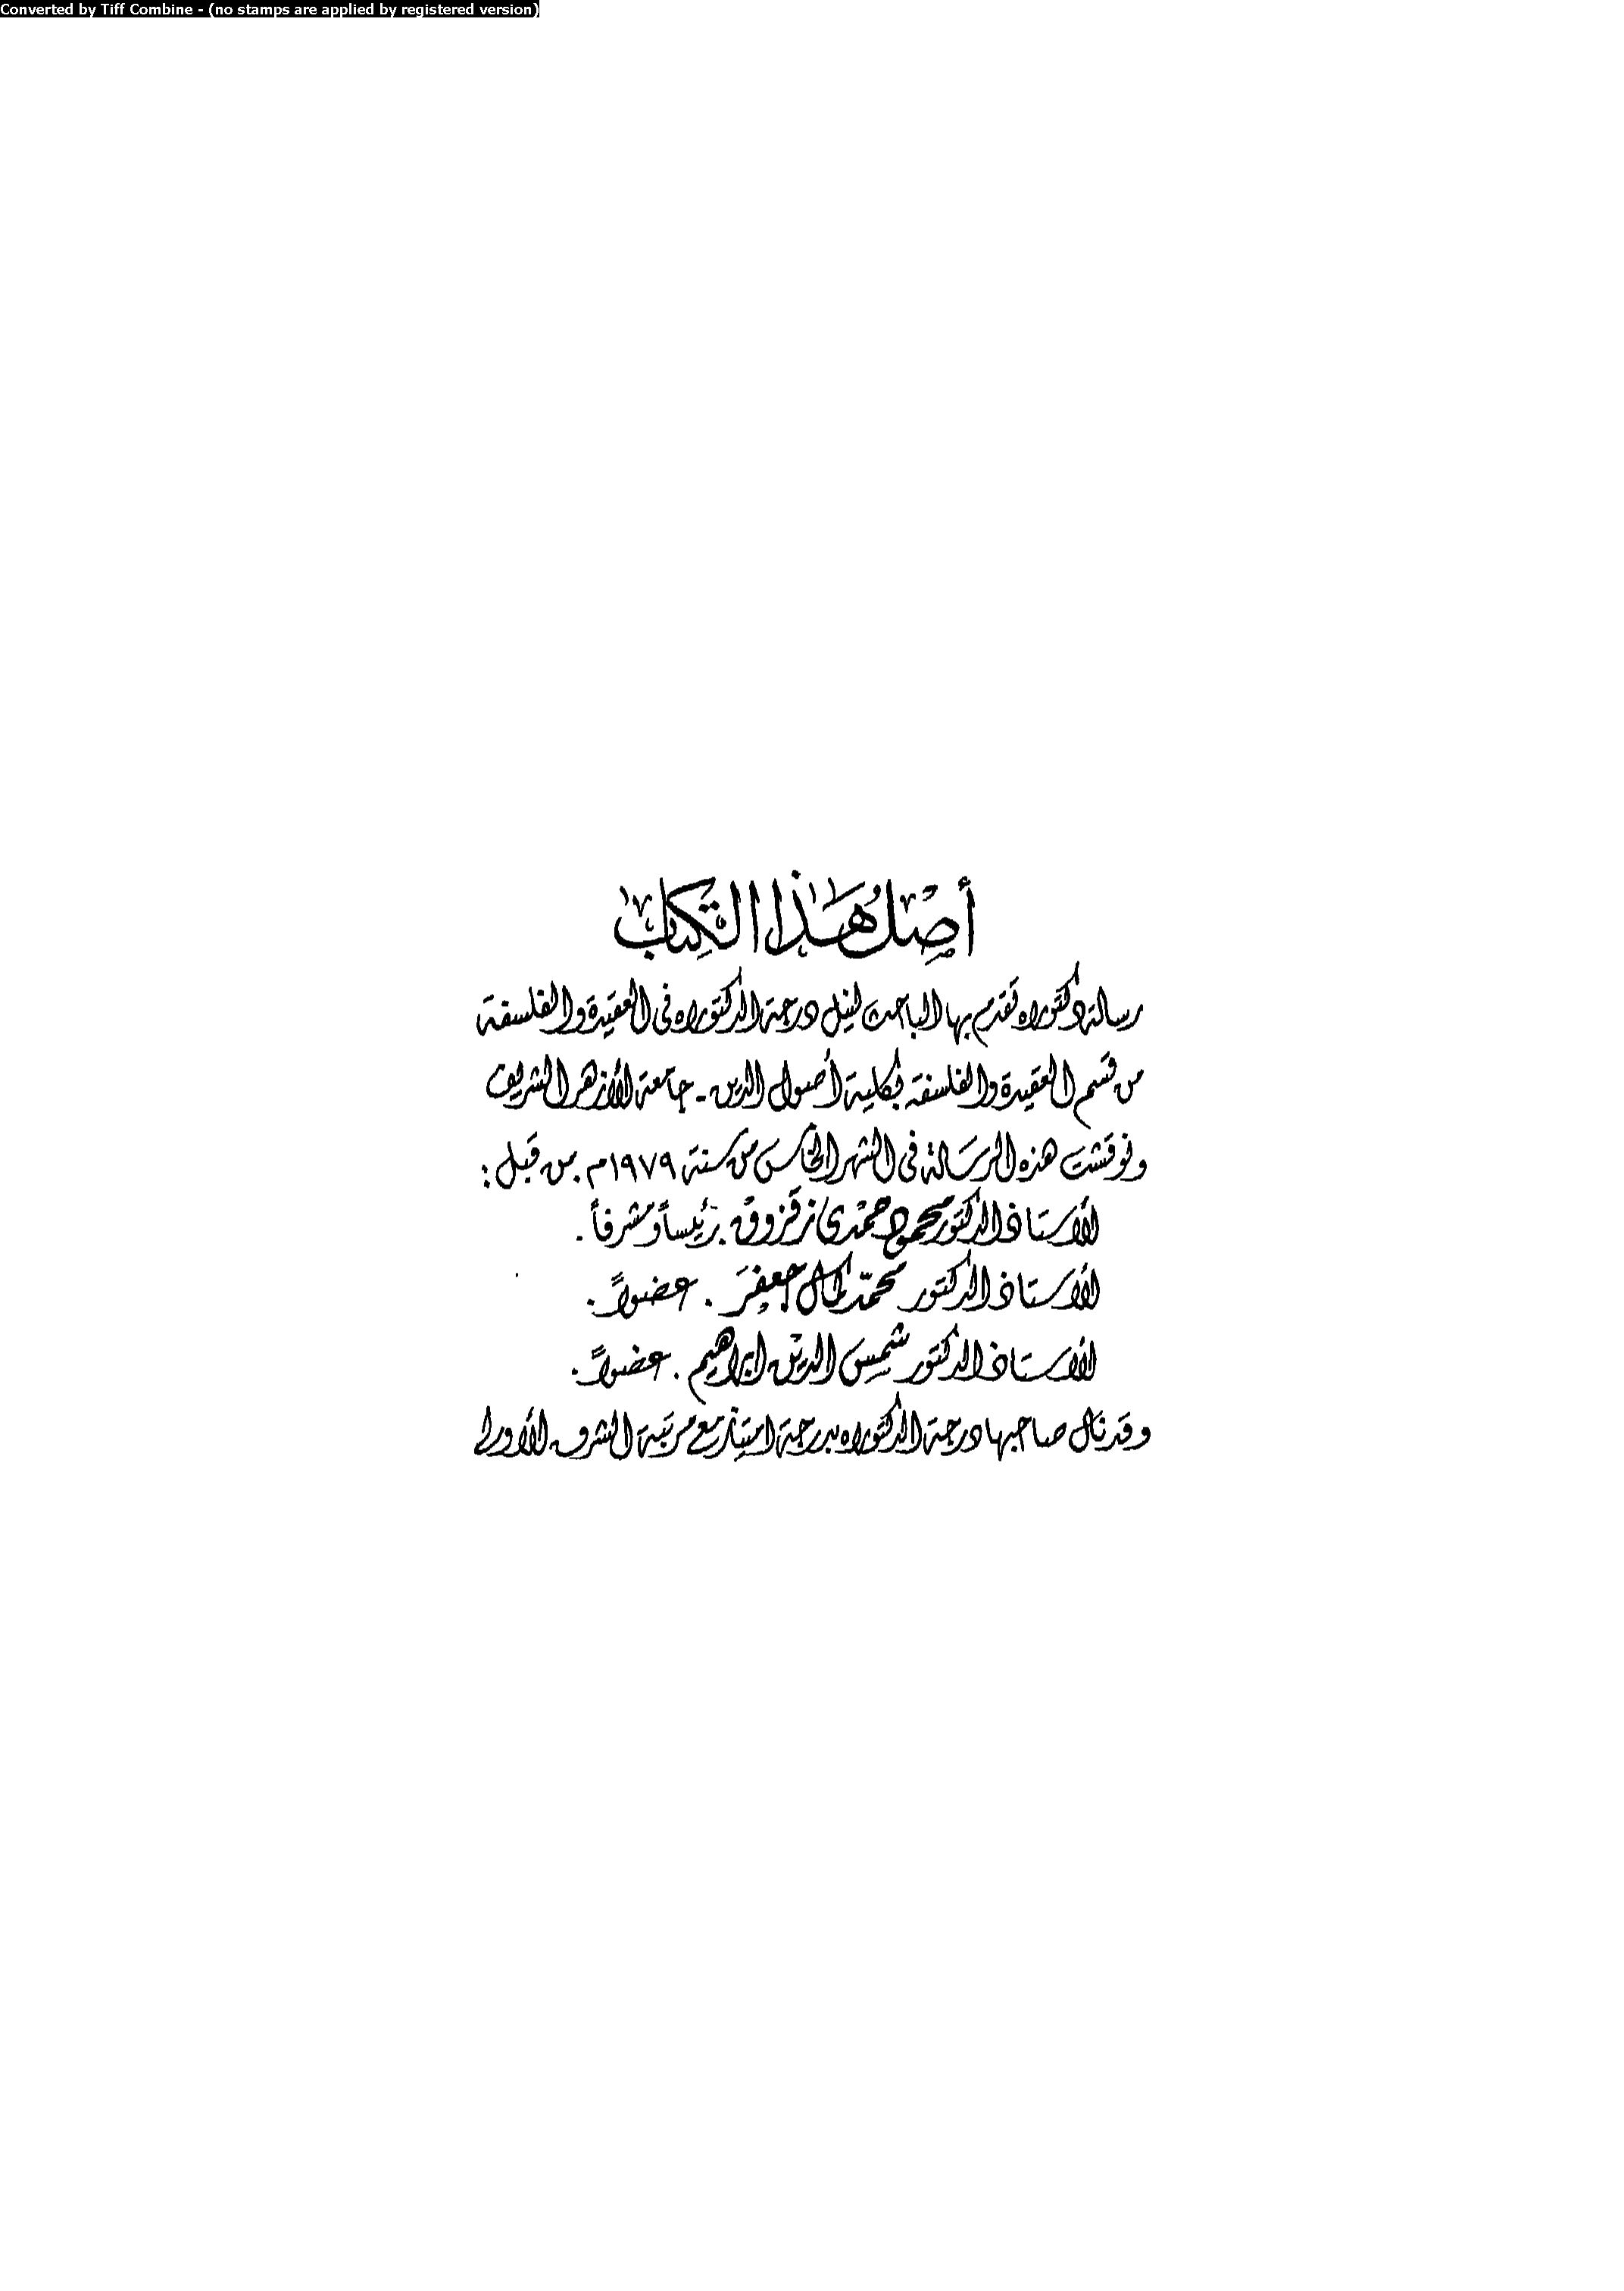 Converted by Tiff Combine - (no stamps are applied by registered version)
أصل هذا الكتاب
رسالة دكتوراه تقدم بها الباحث لنيل درجة الدكتوراه في العقيدة والفلسفة
من قسم العقيدة والفلسفة بكلية أصول الدين - جامعة الأزهر الشريف
ونوقشت هذه الرسالة في الشهر الخامس من سنة ١٩٧٩م. من قبل :
الأستاذ الدكتور محمود حمدي زقزوق. رئيساً ومشرفاً.
الأستاذ الدكتور محمّد كمال جعفر. عضواً.
الأستاذ الدكتور شمس الدين إبراهيم. عضواً.
وقد نال صاحبها درجة الدكتوراه بدرجة امتياز مع مرتبة الشرف الأولى